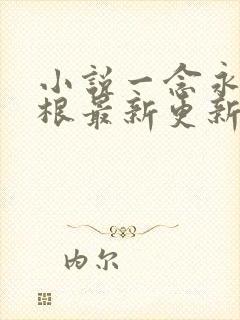 小说一念永
根最新更新
内尔